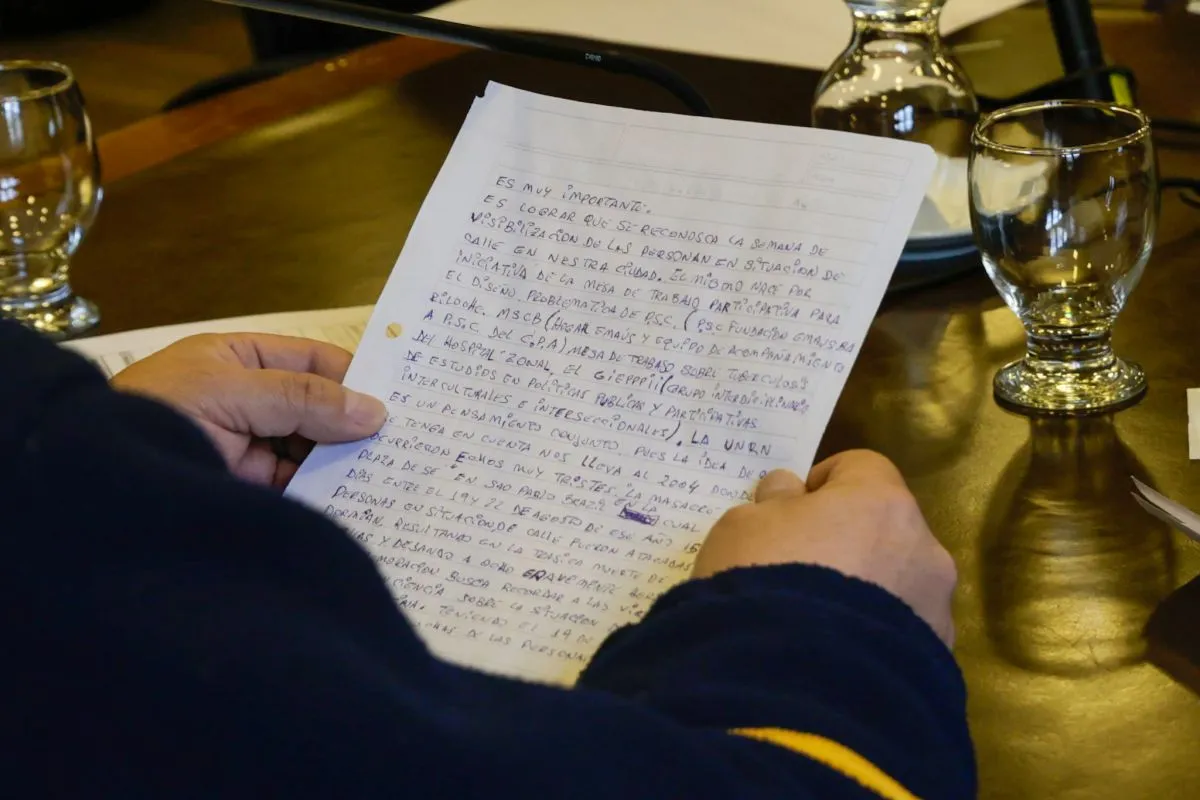 ES MUY IMPORTANTE.
ES LOGRAR QUE SE RECONOSCA LA SEMANA DE
VISIBILIZACION DE LAS PERSONAN EN SITUACION DE
CALLE EN NESTRA CIUDAD. EL MISMO NACE POR
INICIATIVA DE LA MESA DE TRABAJO PARTICIPATIVA PARA
EL DISEÑO. PROBLEMATICA DE P.S.C. (PSC FUNDACION EMAUS BA
RILOCHE. MSCB (HOGAR EMAUS Y EQUIPO DE ACOMPAÑAMIENTO
A P.S.C. DEL C.P.A) MESA DE TRABAJO SOBRE TUBERCULOSIS
DEL HOSPITAL ZONAL, EL GIEPPPII (GRUPO INTERDICIPLINARIO
DE ESTUDIOS EN POLITICAS PUBLICAS Y PARTICIPATIVAS
INTERCULTURALES E INTERSECCIONALES). LA UNRN
ES UN PENSAMIENTO CONJUNTO. PUES LA IDEA DE
SE TENGA EN CUENTA NOS LLEVA AL 2004 DONDE
OCURRIERON ECHOS MUY TRISTES. LA MASACRE
PLAZA DE SE EN SAO PABLO BRAZIL EN LA CUAL
DIAS ENTRE EL 19 Y 22 DE AGOSTO DE ESE AÑO 15
PERSONAS EN SITUACION DE CALLE FUERON ATACADAS
DORMIAN. RESULTANDO EN LA TRAGICA MUERTE DE
Y DEJANDO A OCHO GRAVEMENTE
BUSCA RECORDAR A LAS
SOBRE LA SITUACION
TENIENDO EL 19 DE
DE LAS PERSONAS